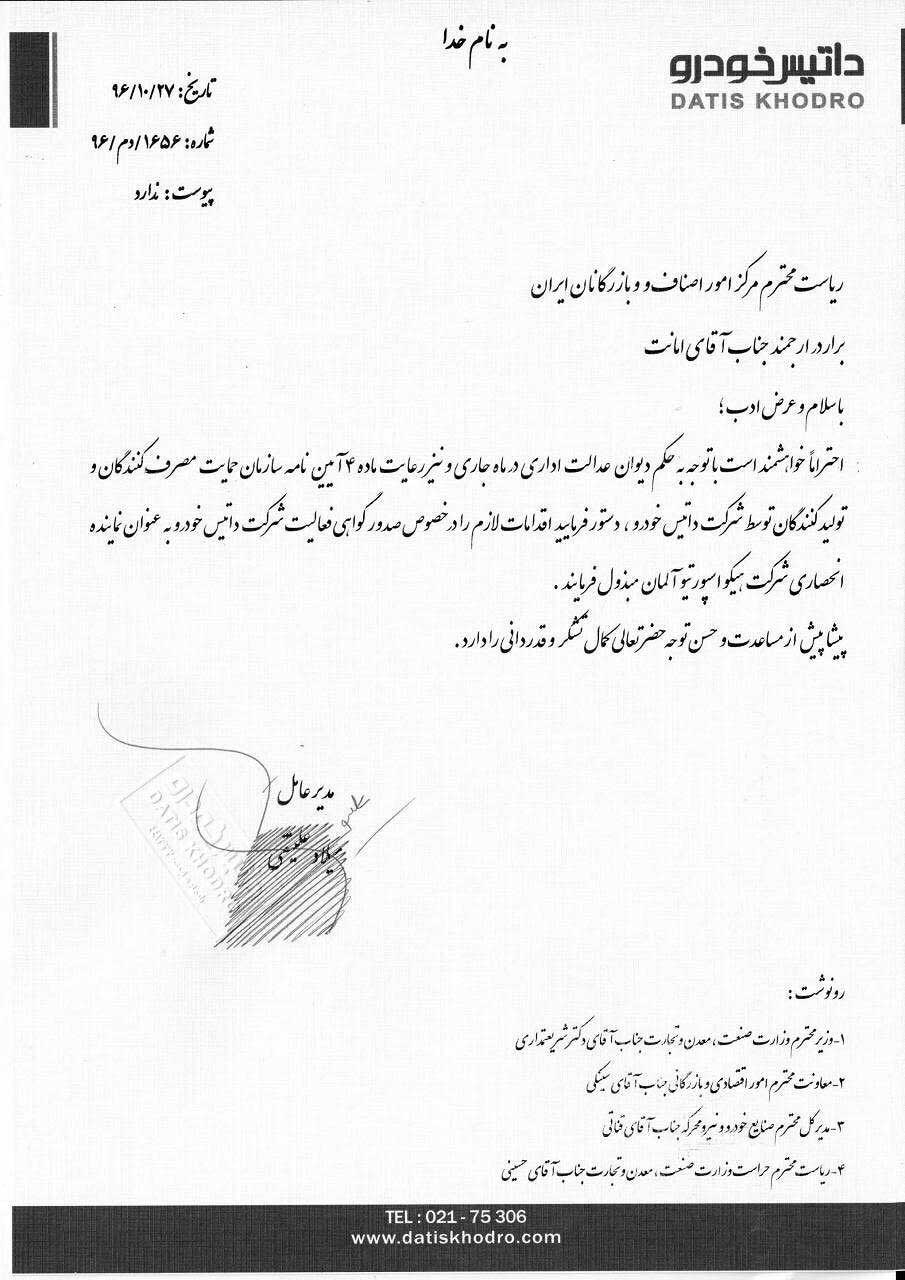 به نام خدا
داتیس خودرو
DATIS KHODRO
تاریخ: ۹۶/۱۰/۲۷
شماره: ۱۶۵۶/دم/۹۶
پیوست: ندارد
ریاست محترم مرکز امور اصناف و و بازرگانان ایران
برادر ارجمند جناب آقای امانت
با سلام و عرض ادب؛
احتراماً خواهشمند است با توجه به حکم دیوان عدالت اداری در ماه جاری و نیز رعایت ماده ۴ آیین نامه سازمان حمایت مصرف کنندگان و
تولید کنندگان توسط شرکت داتیس خودرو، دستور فرمایید اقدامات لازم را در خصوص صدور گواهی فعالیت شرکت داتیس خودرو به عنوان نماینده
انحصاری شرکت هیکو اسپورتیو آلمان مبذول فرمایند.
پیشاپیش از مساعدت و حسن توجه حضرتعالی کمال تشکر و قدردانی را دارد.
مدیر عامل
میلاد علیقی
DATIS KHODRO
رونوشت:
۱-وزیر محترم وزارت صنعت، معدن و تجارت جناب آقای دکتر شریعتمداری
۲-معاونت محترم امور اقتصادی و بازرگانی جناب آقای سینکی
۳-مدیر کل محترم صنایع خودرو و نیرو محرکه جناب آقای قناتی
۴-ریاست محترم حراست وزارت صنعت، معدن و تجارت جناب آقای حسینی
TEL : 021 - 75 306
www.datiskhodro.com